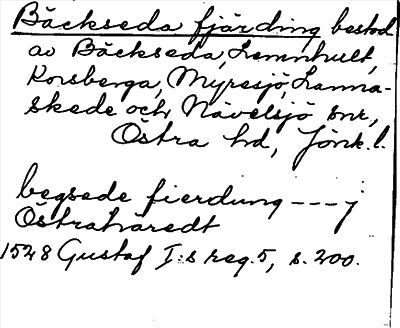 Bäckseda fjärding bestod
av Bäckseda, Lemnhult,
Korsberga, Myresjö, Lanna-
skede och Nävelsjö snr,
Östra hd, Jönk.l.
begsede fierdung --- j
Östrahäredt
1528 Gustaf I:s reg. 5, s. 200.